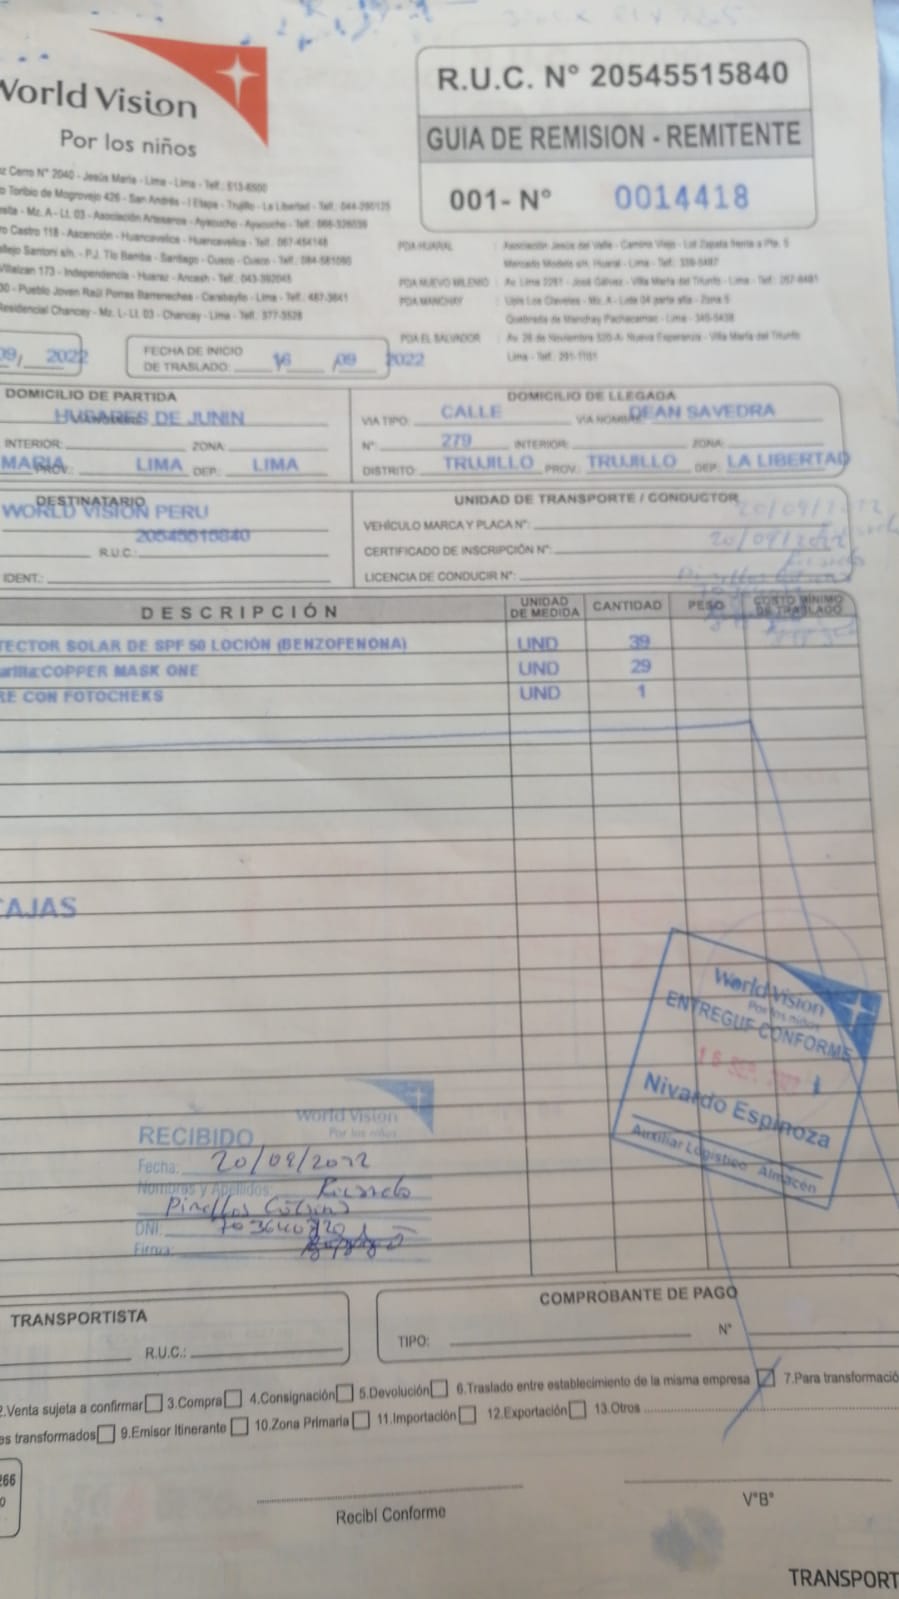 World Vision
Por los niños
R.U.C. N° 20545515840
GUIA DE REMISION - REMITENTE
001- N° 0014418
Cerro N° 2040 - Jesús María - Lima - Lima - Telf.: 613-6500
Toribio de Mogrovejo 426 - San Andrés - I Etapa - Trujillo - La Libertad - Telf.:
Mz. A - Lt. 03 - Asociación Artesanos - Ayacucho - Ayacucho - Telf.:
Castro 118 - Ascención - Huancavelica - Huancavelica - Telf.:
P.J. Tío Bamba - Santiago - Cusco - Cusco - Telf.:
173 - Independencia - Huaraz - Ancash - Telf.:
Pueblo Joven Raúl Porras Barrenechea - Carabayllo - Lima - Telf.:
Residencial Chancay - Mz. L - Lt. 03 - Chancay - Lima - Telf.: 377-3528
PDA HUARAL : Asociación Jesús del Valle - Camino Viejo - Lot Zapata frente a Pte. 5
Mercado Modelo s/n. Huaral - Lima -
PDA NUEVO MILENIO : Av. Lima 2261 - José Gálvez - Villa María del Triunfo - Lima - Telf.:
PDA MANCHAY : Los Claveles - Mz. A - Lote 04 parte alta - Zona 5
Quebrada de Manchay Pachacamac - Lima -
PDA EL SALVADOR : Av. 26 de Noviembre Nueva Esperanza - Villa María del Triunfo
Lima - Telf.:
09/ 2022
FECHA DE INICIO
DE TRASLADO: 16 /09 2022
DOMICILIO DE PARTIDA
HUSARES DE JUNIN
INTERIOR: ZONA:
MARIA PROV.: LIMA DEP.: LIMA
DOMICILIO DE LLEGADA
VIA TIPO: CALLE VIA NOMBRE: DEAN SAVEDRA
N°: 279 INTERIOR: ZONA:
DISTRITO: TRUJILLO PROV.: TRUJILLO DEP.: LA LIBERTAD
DESTINATARIO
WORLD VISION PERU
20545515840
R.U.C.:
IDENT.:
UNIDAD DE TRANSPORTE / CONDUCTOR
VEHÍCULO MARCA Y PLACA N°:
CERTIFICADO DE INSCRIPCIÓN N°:
LICENCIA DE CONDUCIR N°:
20/09/2022
DESCRIPCIÓN UNIDAD DE MEDIDA CANTIDAD PESO COSTO MÍNIMO DE TRASLADO
TECTOR SOLAR DE SPF 50 LOCIÓN (BENZOFENONA) UND 39
COPPER MASK ONE UND 29
RE CON FOTOCHEKS UND 1
CAJAS
World Vision
Por los niños
ENTREGUE CONFORME
16 SEP. 2022
Nivardo Espinoza
Auxiliar Logístico Almacén
World Vision
Por los niños
RECIBIDO
Fecha: 20/09/2022
Nombres y Apellidos: Ricardo
DNI:
Firma:
TRANSPORTISTA
R.U.C.:
COMPROBANTE DE PAGO
TIPO: N°
2.Venta sujeta a confirmar 3.Compra 4.Consignación 5.Devolución 6.Traslado entre establecimiento de la misma empresa 7.Para transformació
es transformados 9.Emisor Itinerante 10.Zona Primaria 11.Importación 12.Exportación 13.Otros
266
0
Recibí Conforme
V°B°
TRANSPORT